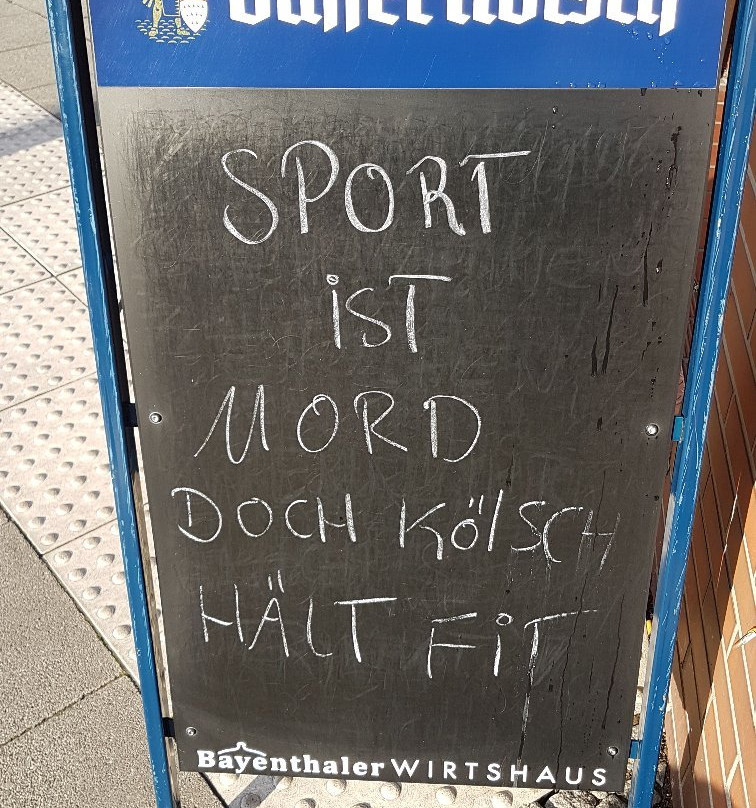 SPORT
iST
MORD
DOCH KÖlSCH
HÄLT FiT
Bayenthaler WIRTSHAUS